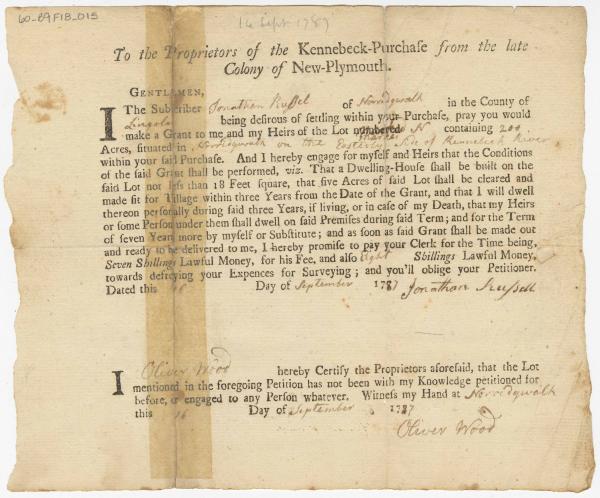 60-89F1B_015
16 Sept 1787
To the Proprietors of the Kennebeck-Purchase from the late
Colony of New-Plymouth.
GENTLEMEN,
I The Subscriber Jonathan Russel of Norridgwalk in the County of
Lincoln being desirous of settling within your Purchase, pray you would
make a Grant to me and my Heirs of the Lot numbered N containing 200
Acres, situated in Norridgwalk on the Easterly Side of Kennebeck River
within your said Purchase. And I hereby engage for myself and Heirs that the Conditions
of the said Grant shall be performed, viz. That a Dwelling-House shall be built on the
said Lot not less than 18 Feet square, that five Acres of said Lot shall be cleared and
made fit for Tillage within three Years from the Date of the Grant, and that I will dwell
thereon personally during said three Years, if living, or in case of my Death, that my Heirs
or some Person under them shall dwell on said Premises during said Term; and for the Term
of seven Years more by myself or Substitute; and as soon as said Grant shall be made out
and ready to be delivered to me, I hereby promise to pay your Clerk for the Time being,
Seven Shillings Lawful Money, for his Fee, and also Eight Shillings Lawful Money,
towards defreying your Expences for Surveying; and you'll oblige your Petitioner.
Dated this 16 Day of September 1787 Jonathan Russell
I Oliver Wood hereby Certify the Proprietors aforesaid, that the Lot
mentioned in the foregoing Petition has not been with my Knowledge petitioned for
before, or engaged to any Person whatever. Witness my Hand at Norridgwalk
this 16 Day of September 1787
Oliver Wood